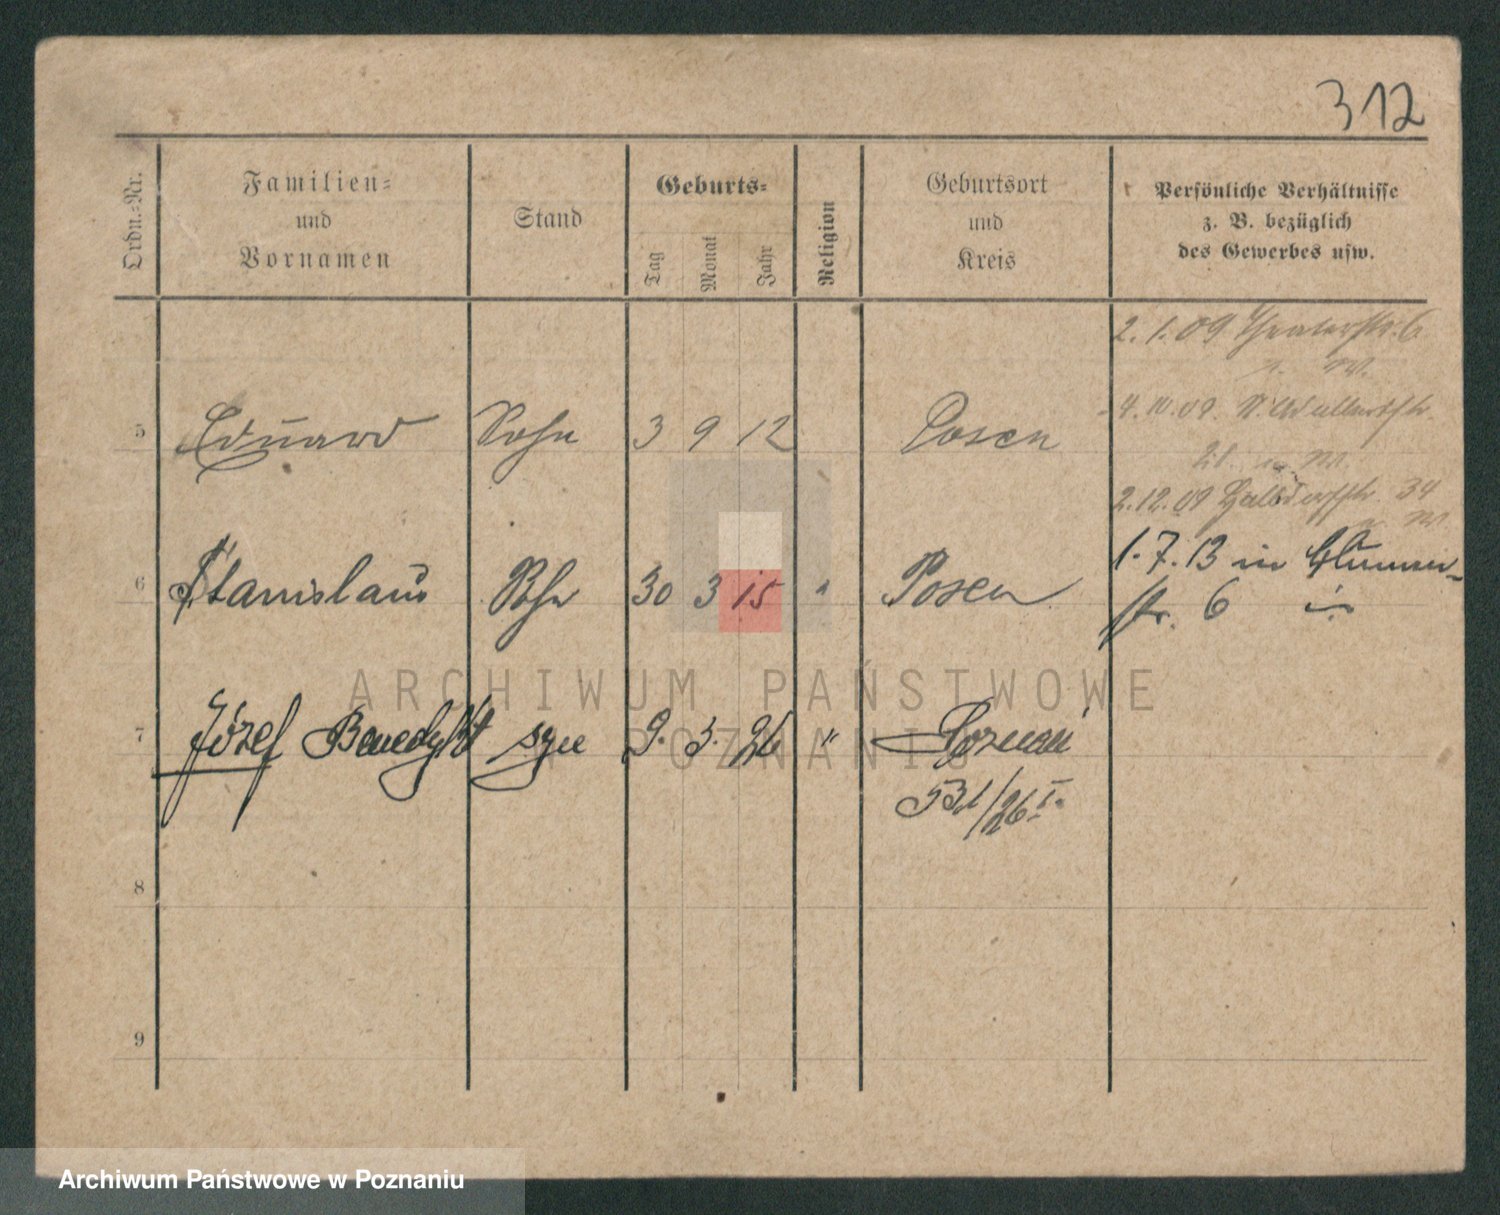 312
Ordn.-Nr.
Familien-
und
Vornamen
Stand
Geburts-
Tag
Monat
Jahr
Religion
Geburtsort
und
Kreis
Persönliche Verhältnisse
z. B. bezüglich
des Gewerbes usw.
2. 1. 09 Theaterstr. 6
5 Eduard Sohn 3 9 12 Posen
4. 10. 09
2. 12. 09 34
6 Stanislaus Sohn 30 3 15 " Posen
1. 7. 13 in Blumen-
str. 6
7 Józef Benedykt syn 9. 3. 26 " Poznań
531/26 I.
8
9
ARCHIWUM PAŃSTWOWE
W POZNANIU
Archiwum Państwowe w Poznaniu